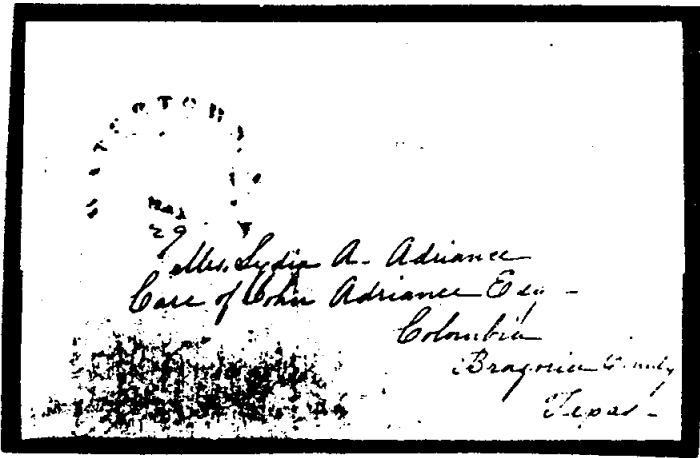 29
Mrs. Lydia A- Adriance
Care of John Adriance Esq -
Colombia
Brazoria County
Texas -